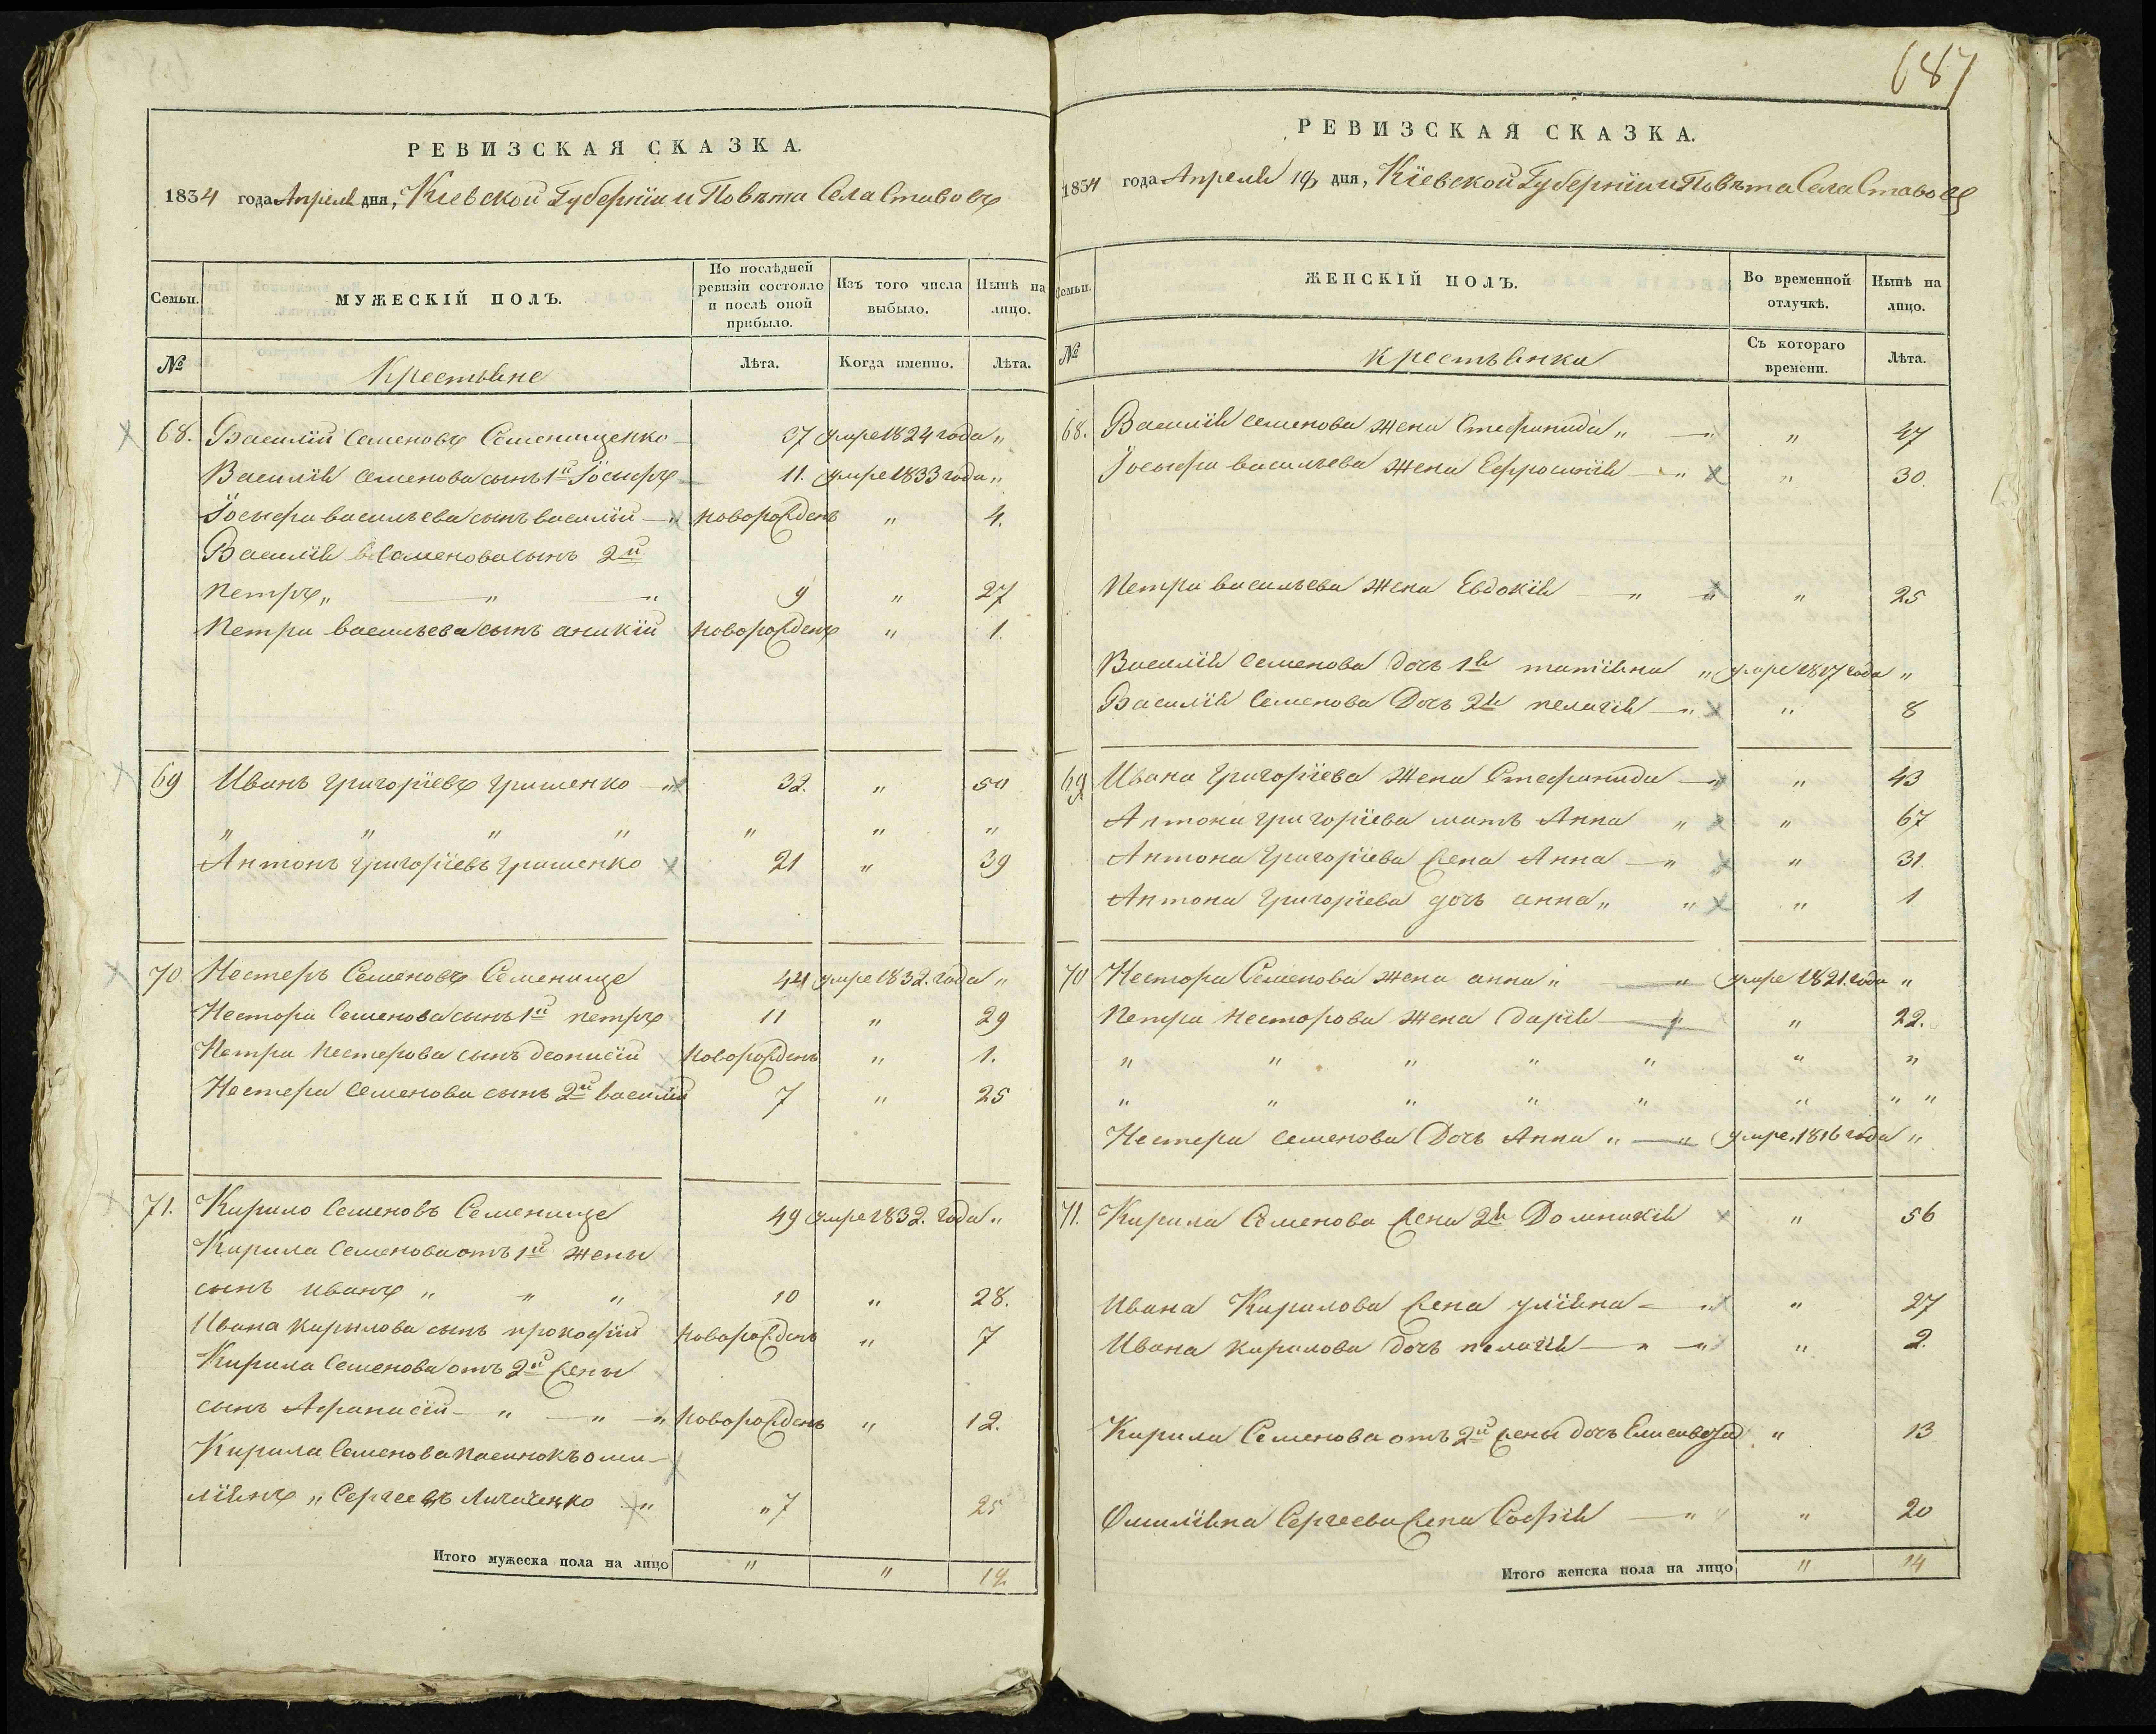 687
РЕВИЗСКАЯ СКАЗКА.
1834 года Апреля дня, Кіевской Губерніи и Повѣта Села Ставовъ
Семьи.
МУЖЕСКІЙ ПОЛЪ.
По послѣдней ревизіи состояло и послѣ оной прибыло.
Изъ того числа выбыло.
Нынѣ на лицо.
№
Крестьяне
Лѣта.
Когда именно.
Лѣта.
68. Василій Семеновъ Семенищенко 37 умре 1824 года "
Василія Семенова сынъ 1й Іосифъ 11. умре 1833 года "
Іосифа васильева сынъ василій новорожденъ " 4.
Василія Семенова сынъ 2й
петръ " " " 9 " 27
Петра васильева сынъ аникій новорожденъ " 1.
69 Иванъ григоріевъ гришенко 32. " 50
" " " " " " "
Антонъ григоріевъ гришенко 21 " 39
70 Нестеръ Семеновъ Семенище 44 умре 1832. года "
Нестора Семенова сынъ 1й петръ 11 " 29
Петра нестерова сынъ деонисій новорожденъ " 1.
Нестера Семенова сынъ 2й василій 7 " 25
71. Кирило Семеновъ Семенище 49 умре 1832. года "
Кирила Семенова отъ 1й жены
сынъ иванъ " " " 10 " 28.
Ивана кирилова сынъ прокофій новорожденъ " 7
Кирила Семенова отъ 2й жены
сынъ Афанасій " " новорожденъ " 12.
Кирила Семенова пасинокъ оми-
ліянъ " Сергеевъ " " 7 25
Итого мужеска пола на лицо " " 12
РЕВИЗСКАЯ СКАЗКА.
1834 года Апреля дня, Кіевской Губерніи и Повѣта Села Ставовъ
Семьи.
ЖЕНСКІЙ ПОЛЪ.
Во временной отлучкѣ.
Нынѣ на лицо.
№
Крестьянки
Съ котораго времени.
Лѣта.
68. Василія Семенова жена Стефанида " " " 47
Іосифа васильева жена Ефросинія " " 30.
Петра васильева жена Евдокія " " " 25
Василія Семенова дочь 1я татіяна " умре 1817 года "
Василія Семенова Дочь 2я пелагія " " 8
69 Ивана григоріева жена Стефанида " " 43
Антона григоріева мать Анна " " 67
Антона григоріева жена Анна " " 31.
Антона григоріева дочь анна " " " 1
70 Нестора Семенова жена анна " " умре 1821. года "
Петра несторова жена дарія " " 22.
" " " " " " "
" " " " " " " "
Нестера Семенова Дочь Анна " " умре 1816 года "
71. Кирила Семенова жена 2я Домникія " 56
Ивана Кирилова жена уліяна " " 27
Ивана кирилова дочь пелагія " " " 2.
Кирила Семенова отъ 2й жены дочь Елисавета " 13
Омиліяна Сергеева жена Софія " " " 20
Итого женска пола на лицо " 14